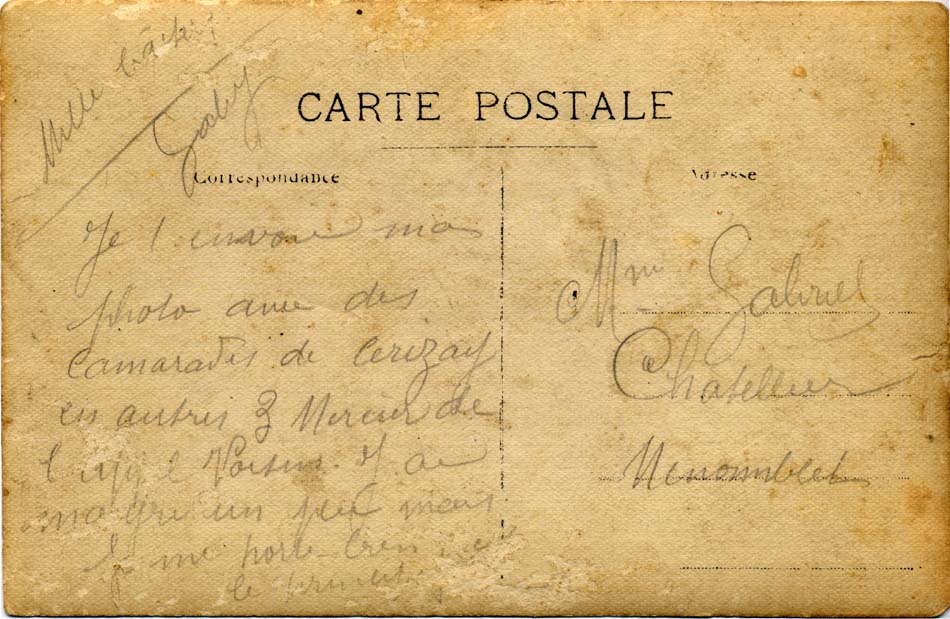 Mille
Gaby
CARTE POSTALE
Correspondance
Adresse
Je t envoie ma
photo avec des
camarades de Cerizay
autres 3 Mercier de
Voisin. J ai
maigri un peu mais
je me porte bien
le
Mme Gabriel
Chatellier
Menomblet